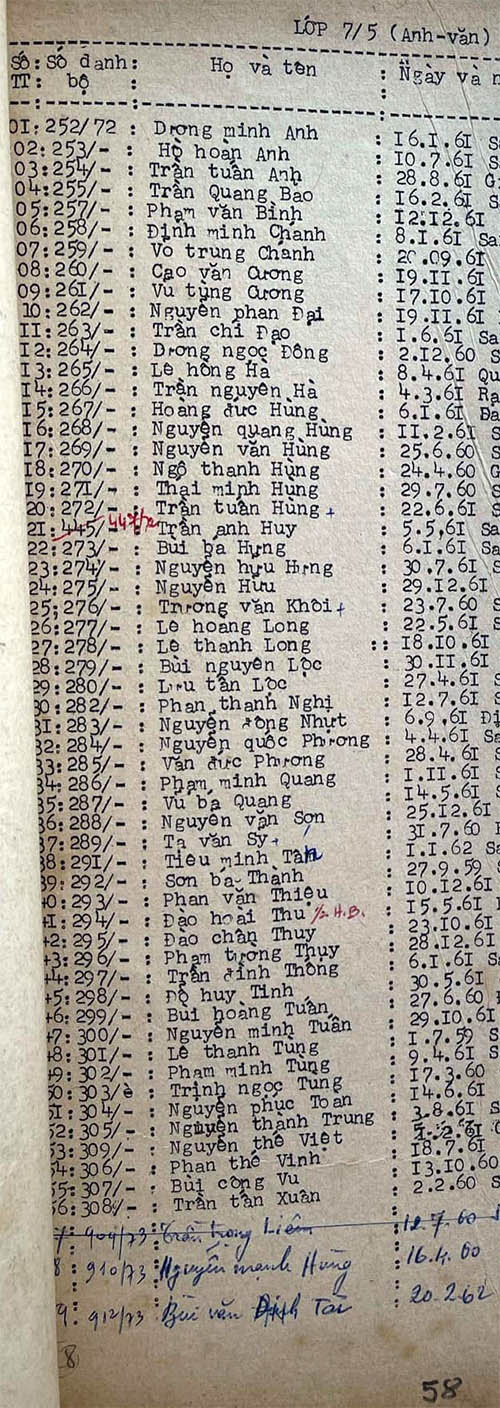 LỚP 7/5 (Anh-văn)
Số: Số danh: Họ và tên : Ngày và n
TT: bộ : :
01: 252/72 : Dương minh Anh 16.1.61 S
02: 253/- : Hồ hoàn Anh : 10.7.61 S
03: 254/- : Trần tuấn Anh : 28.8.61 G
04: 255/- : Trần Quang Bảo : 16.2.61 S
05: 257/- : Phạm văn Bình : 12.12.61
06: 258/- : Định minh Chánh : 8.1.61 Sa
07: 259/- : Võ trung Chánh : 20.09.61
08: 260/- : Cao văn Cương : 19.11.61
09: 261/- : Vũ tùng Cương : 17.10.61
10: 262/- : Nguyễn phan Đại : 19.11.61
11: 263/- : Trần chí Đạo : 1.6.61 Sa
12: 264/- : Dương ngọc Đông : 2.12.60 S
13: 265/- : Lê hồng Hà : 8.4.61 Qu
14: 266/- : Trần nguyên Hà : 4.3.61 Rạ
15: 267/- : Hoàng đức Hùng : 6.1.61 Đa
16: 268/- : Nguyễn quang Hùng : 11.2.61 S
17: 269/- : Nguyễn văn Hùng : 25.6.60 S
18: 270/- : Ngô thanh Hùng : 24.4.60 G
19: 271/- : Thái minh Hùng : 29.7.60 S
20: 272/- : Trần tuấn Hùng + : 22.6.61 S
21: 445/- : Trần anh Huy : 5.5,61 Sa
22: 273/- : Bùi bá Hưng : 6.1.61 Sa
23: 274/- : Nguyễn hữu Hưng : 30.7.61 S
24: 275/- : Nguyễn Hữu : 29.12.61
25: 276/- : Trương văn Khôi + : 23.7.60 S
26: 277/- : Lê hoàng Long : 22.5.61 S
27: 278/- : Lê thanh Long :: 18.10.61
28: 279/- : Bùi nguyên Lộc : 30.11.61
29: 280/- : Lưu tấn Lộc : 27.4.61 S
30: 282/- : Phan thanh Nghị : 12.7.61 S
31: 283/- : Nguyễn đông Nhựt : 6.9,61 Đị
32: 284/- : Nguyễn quốc Phương : 4.4.61 Sa
33: 285/- : Văn đức Phương : 28.4.61 S
34: 286/- : Phạm minh Quang : 1.11.61 S
35: 287/- : Vũ bá Quang : 14.5.61 S
36: 288/- : Nguyễn văn Sơn : 25.12.61
37: 289/- : Tạ văn Sỹ + : 31.7.60
38: 291/- : Tiêu minh Tân : 1.1.62 Sa
39: 292/- : Sơn bá Thành : 27.9.59 S
40: 293/- : Phan văn Thiệu : 10.12.61
41: 294/- : Đào hoài Thu 1/2 H.B. : 15.5.61
42: 295/- : Đào chân Thuy : 23.10.61
43: 296/- : Phạm tường Thuy : 28.12.61
44: 297/- : Trần đình Thông : 6.1.61 Sa
45: 298/- : Đỗ huy Tinh : 30.5.61
46: 299/- : Bùi hoàng Tuấn : 27.6.60
47: 300/- : Nguyễn minh Tuấn : 29.10.61
48: 301/- : Lê thanh Tùng : 1.7.59 S
49: 302/- : Phạm minh Tùng : 9.4.61 S
50: 303/è : Trịnh ngọc Tùng : 17.3.60
51: 304/- : Nguyễn phúc Toàn : 14.6.61
52: 305/- : Nguyễn thành Trung : 3.8.61 S
53: 309/- : Nguyễn thế Việt
54: 306/- : Phan thế Vinh : 18.7.61
55: 307/- : Bùi công Vũ : 13.10.60
56: 308/- : Trần tấn Xuân : 2.2.60 S
7 : 909/73 : Trần trọng Liêm : 12.7.60
8 : 910/73 : Nguyễn mạnh Hùng : 16.4.60
9 : 912/73 : Bùi văn Tài : 20.2.62
8
58